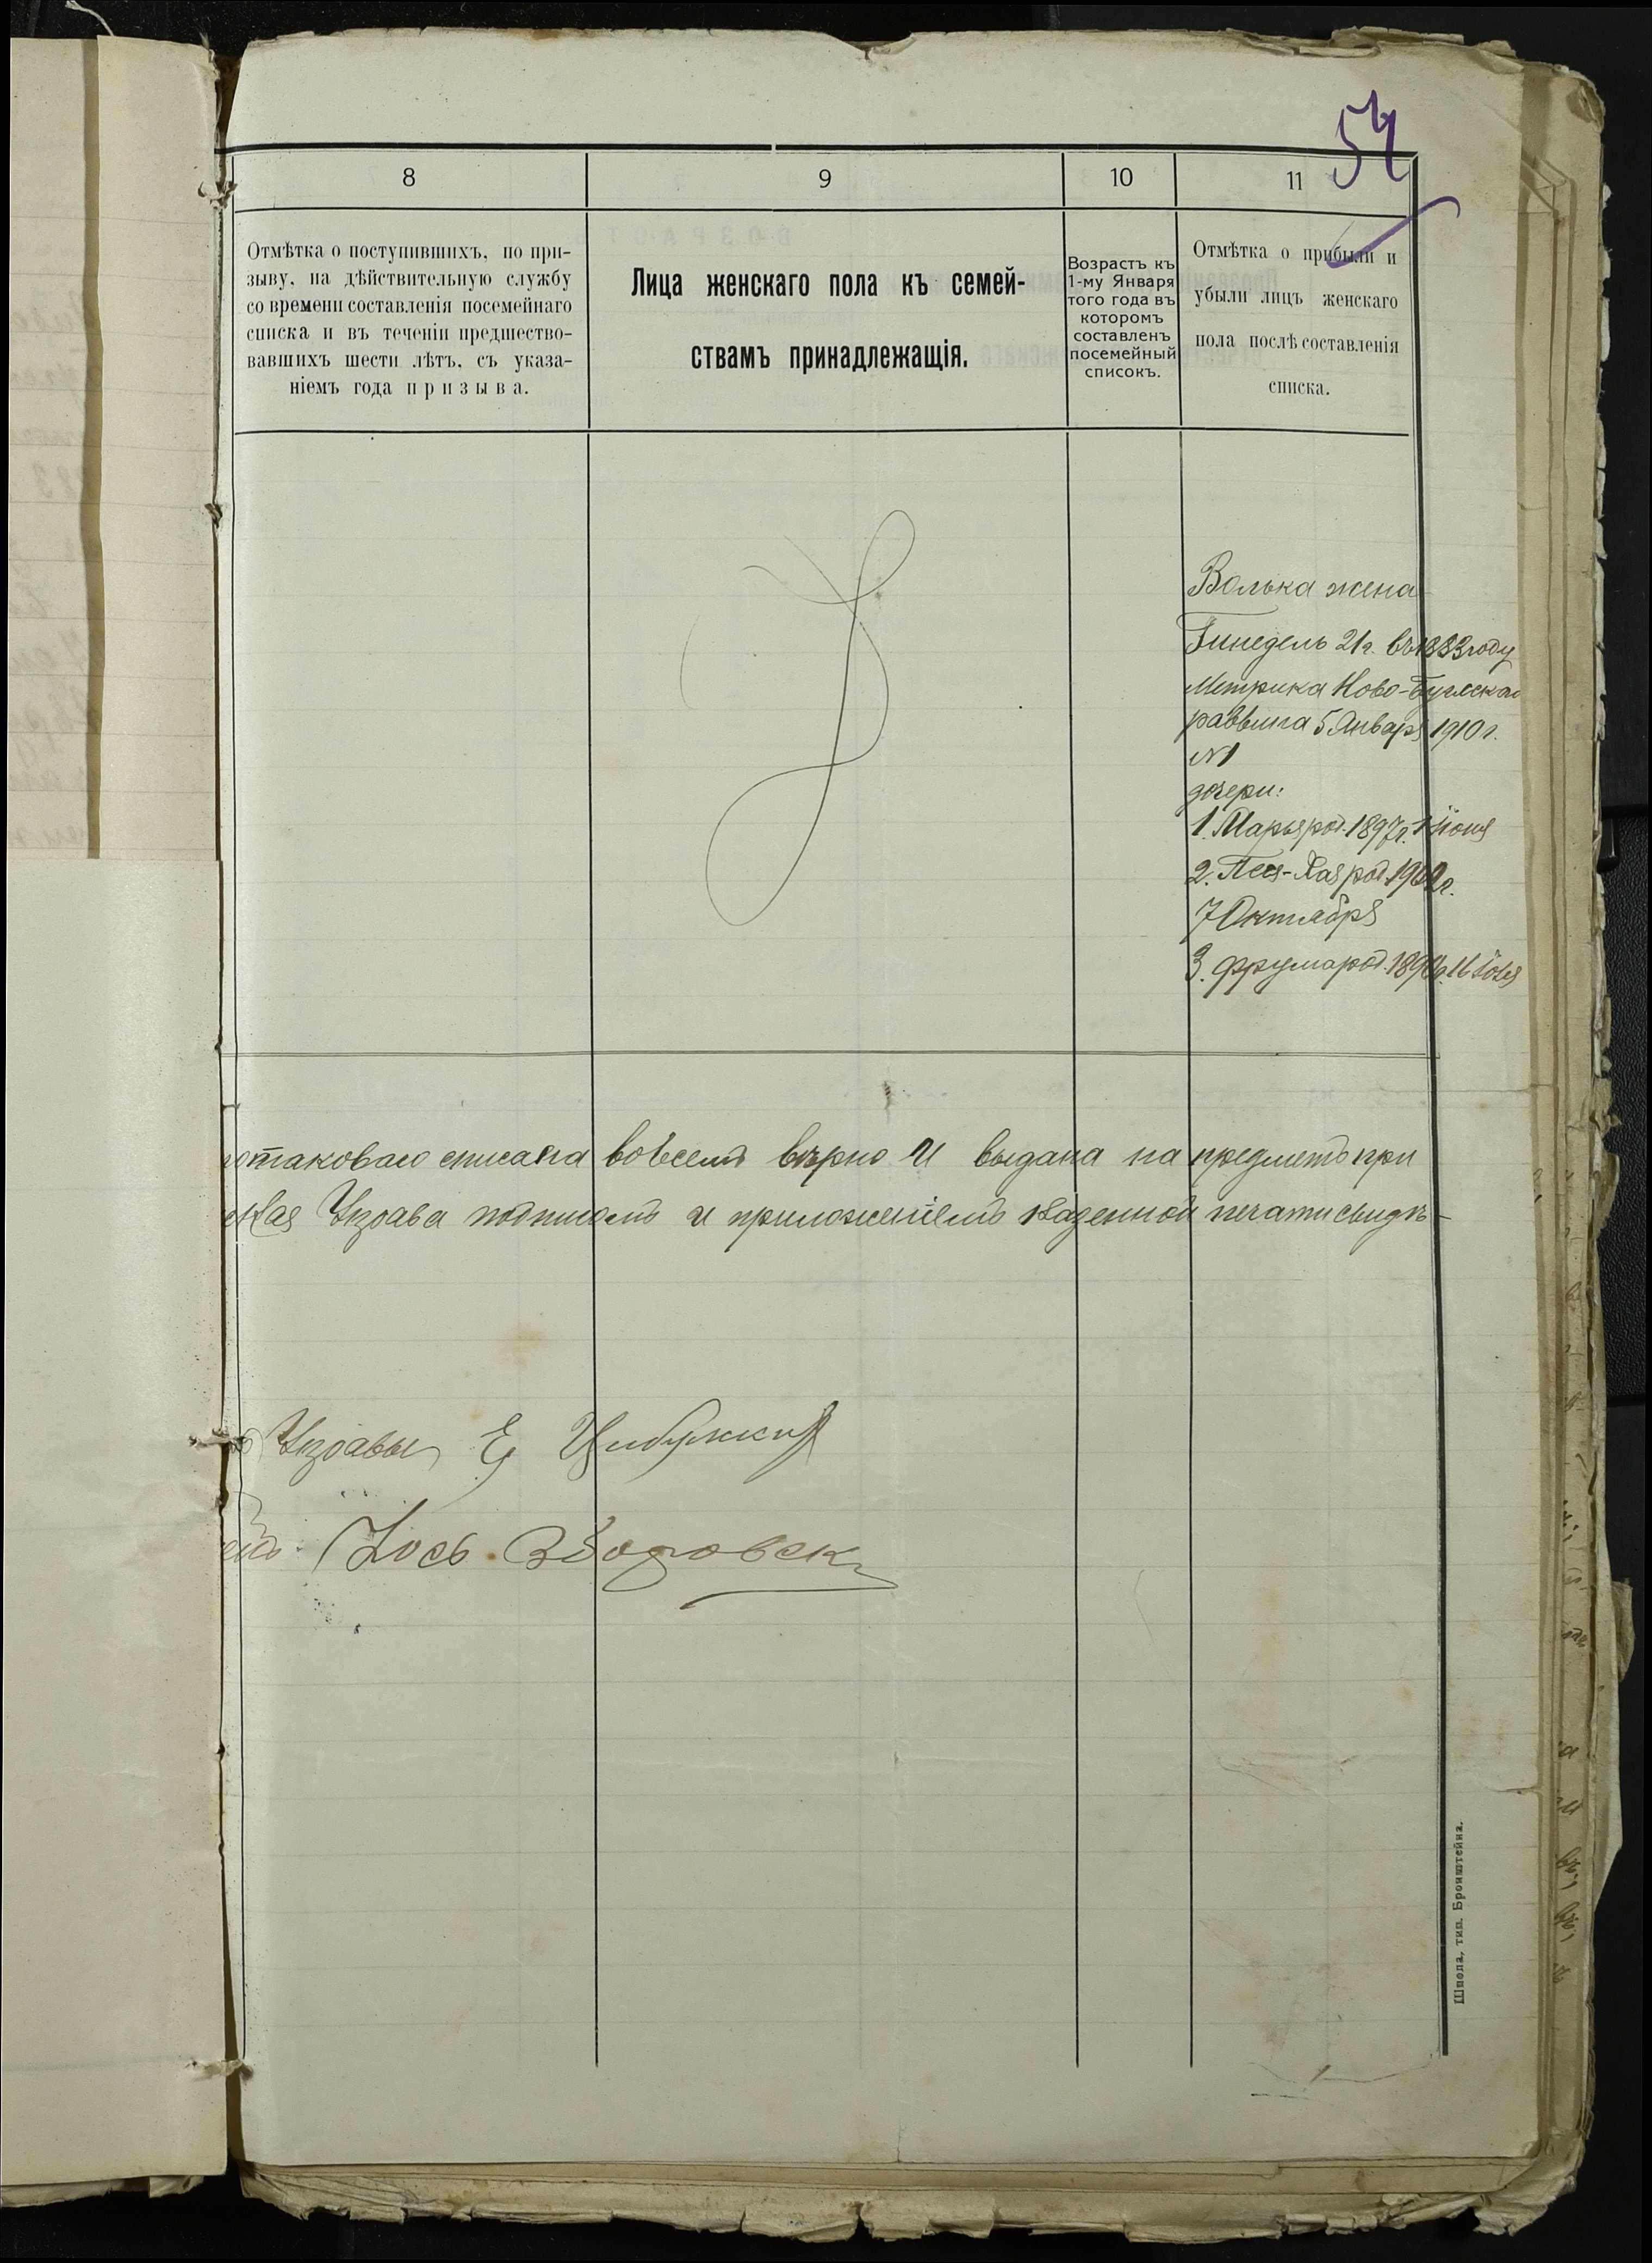 54
8
9
10
11
Отмѣтка о поступившихъ, по при-
зыву, на дѣйствительную службу
со времени составленія посемейнаго
списка и въ теченіи предшество-
вавшихъ шести лѣтъ, съ указа-
ніемъ года призыва.
Лица женскаго пола къ семей-
ствамъ принадлежащія.
Возрастъ къ
1-му Января
того года въ
которомъ
составленъ
посемейный
списокъ.
Отмѣтка о прибыли и
убыли лицъ женскаго
пола послѣ составленія
списка.
Волька жена
21 г. въ 1883 году
Метрика Ново-Бугскаго
раввина 5 Января 1910 г.
№1
дочери:
1. Марья род. 1897 г. 1 Іюня
2. Песя-Хая род.
7 Октября
3. Фрума род.
списана во всемъ вѣрно и выдана на предметъ при
Управа подписомъ и приложеніемъ казенной печати свидѣ-
Управы Е
Іось
Шпола, тип. Бронштейна.